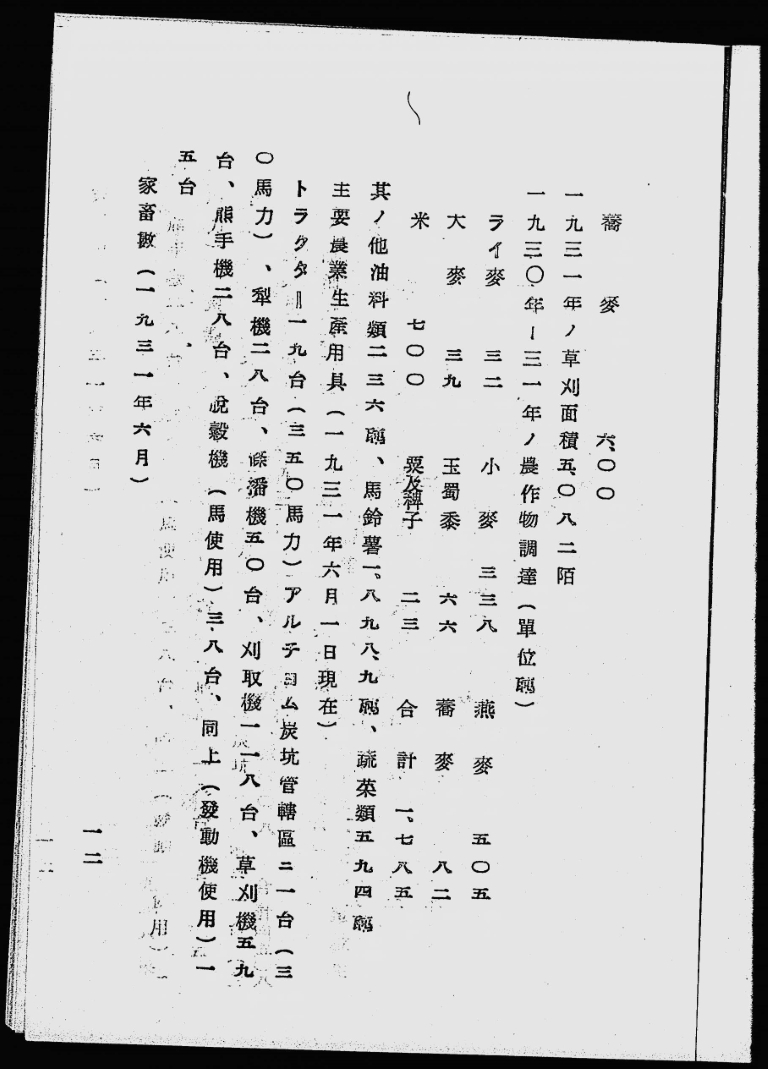 蕎麥　六、〇〇
一九三一年ノ草刈面積五、〇八二陌
一九三〇年ー三一年ノ農作物調達（單位瓲）
ライ麥　三二　小麥　三三八　燕麥　五〇五
大麥　三九　玉蜀黍　六六　蕎麥　八二
米　七〇〇　粟及稗子　二三　合計　一、七八五
其ノ他油料類二三六瓲、馬鈴薯一、八九八、九瓲、蔬菜類五九四瓲
主要農業生產用具（一九三一年六月一日現在）
トラクター一九台（三五〇馬力）アルチョム炭坑管轄區二一台（三
〇馬力）、犁機二八台、條潘機五〇台、刈取機一一八台、草刈機五九
台、熊手機二八台、脫穀機（馬使用）三八台、同上（發動機使用）一
五台
家畜數（一九三一年六月）
一二